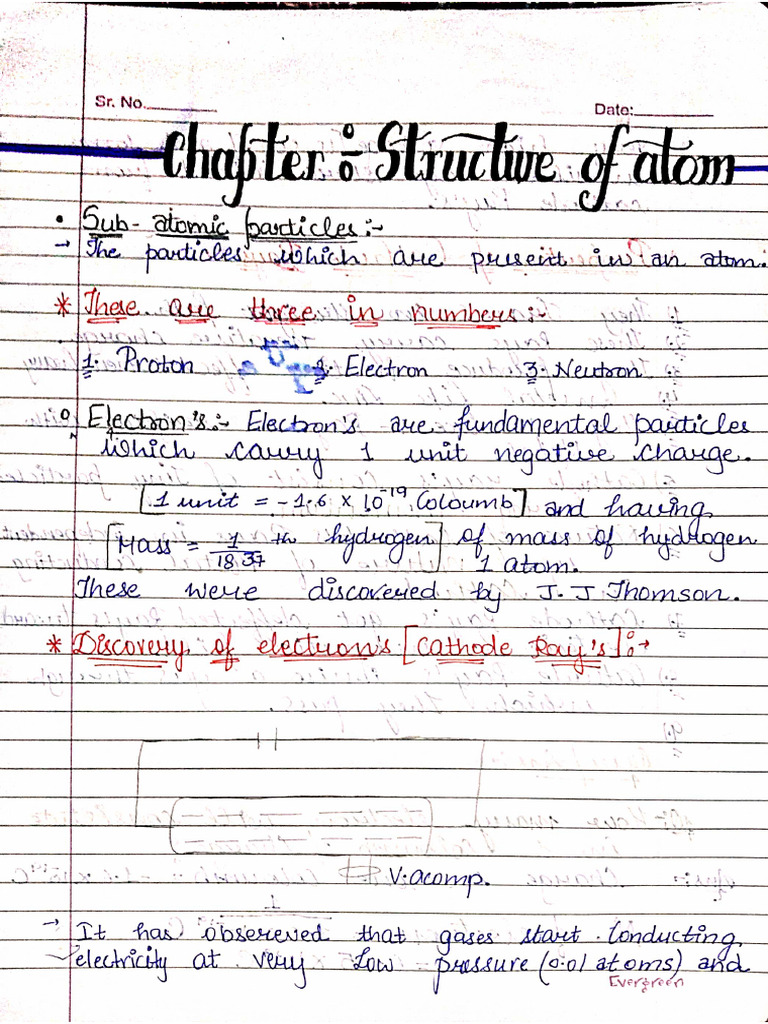 Sr. No.
Date:
Chapter : Structure of atom
• Sub-atomic particles :-
→ The particles which are present in an atom.
* These are three in numbers :-
1. Proton 2. Electron 3. Neutron
Electron's :- Electron's are fundamental particles
which carry 1 unit negative charge.
[1 unit = -1.6 × 10⁻¹⁹ Coloumb] and having
[Mass = 1/18.37 th hydrogen] of mass of hydrogen
1 atom.
These were discovered by J.J Thomson.
* Discovery of electron's [Cathode Ray's] :→
V.acomp.
→ It has obsereved that gases start conducting
electricity at very low pressure (0.01 atoms) and
Evergreen